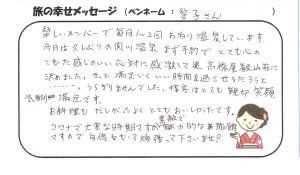 旅の幸せメッセージ(ペンネーム:愛子さん)
楽しいメンバーで毎月1~2回お泊り温泉しています。
今月は久しぶりの奥川温泉 まず予約でとても心の
こもった感じのいい応対に感激して
決めました。きっと満足いくいい時間を過ごせるだろうと
………。うらぎりませんでした。接客はとても親切 笑顔
満点です。
お料理もだしが良くとてもおいしかったです。
コロナで大変な時期ですが 素敵で魅力的なお旅館
ですので 自信をもって頑張って下さいませ!